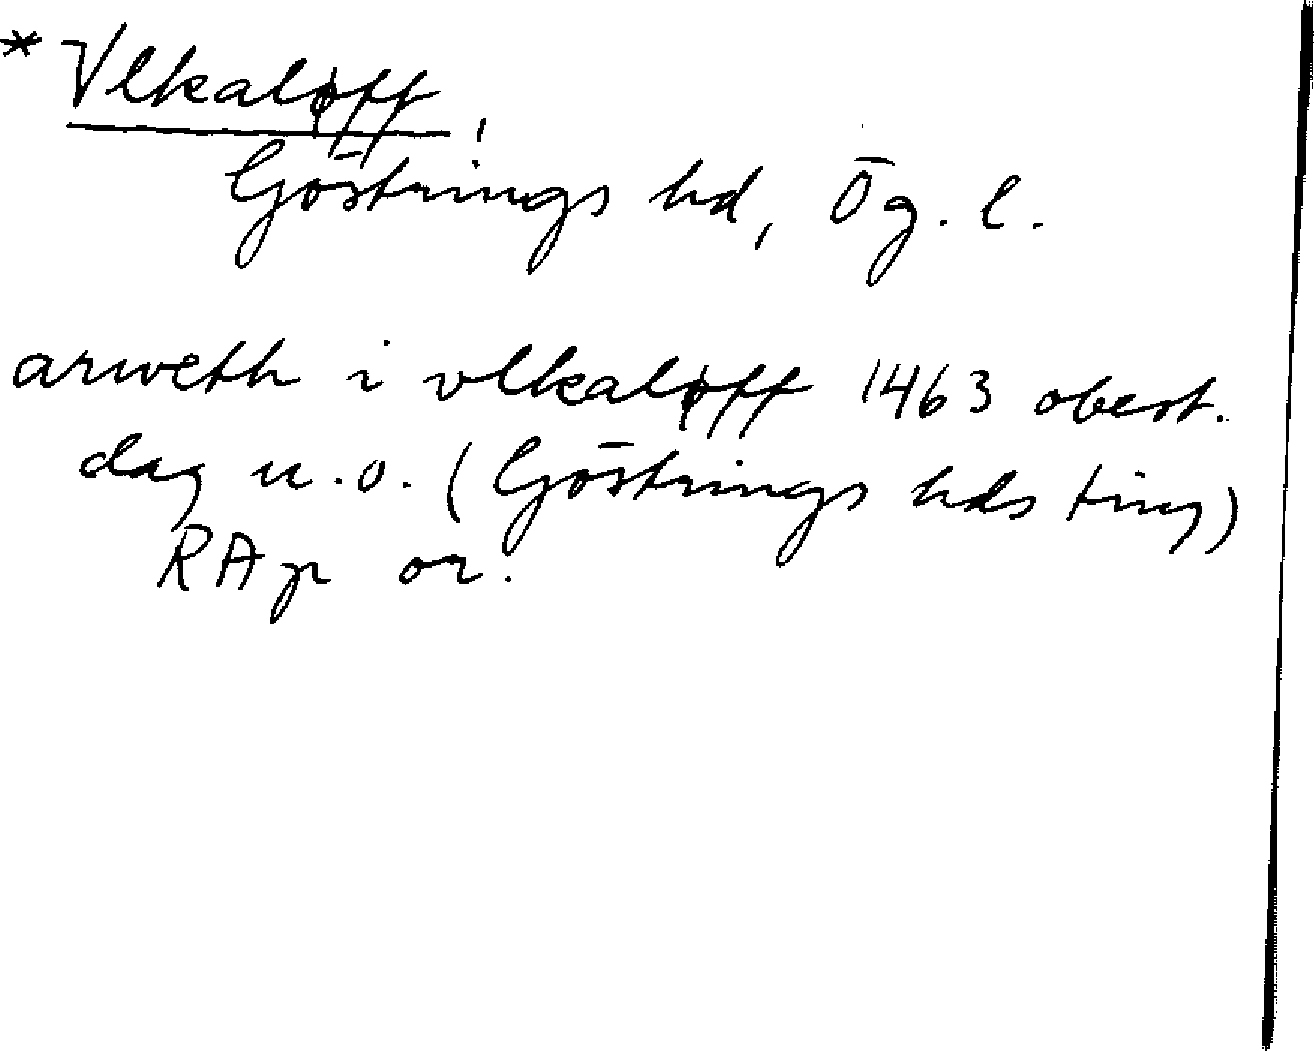 * Vlkaløff
Göstrings hd, Ög. l.
arweth i vlkaløff 1463 obest.
dag u.o. (Göstrings hds ting)
RAp or.